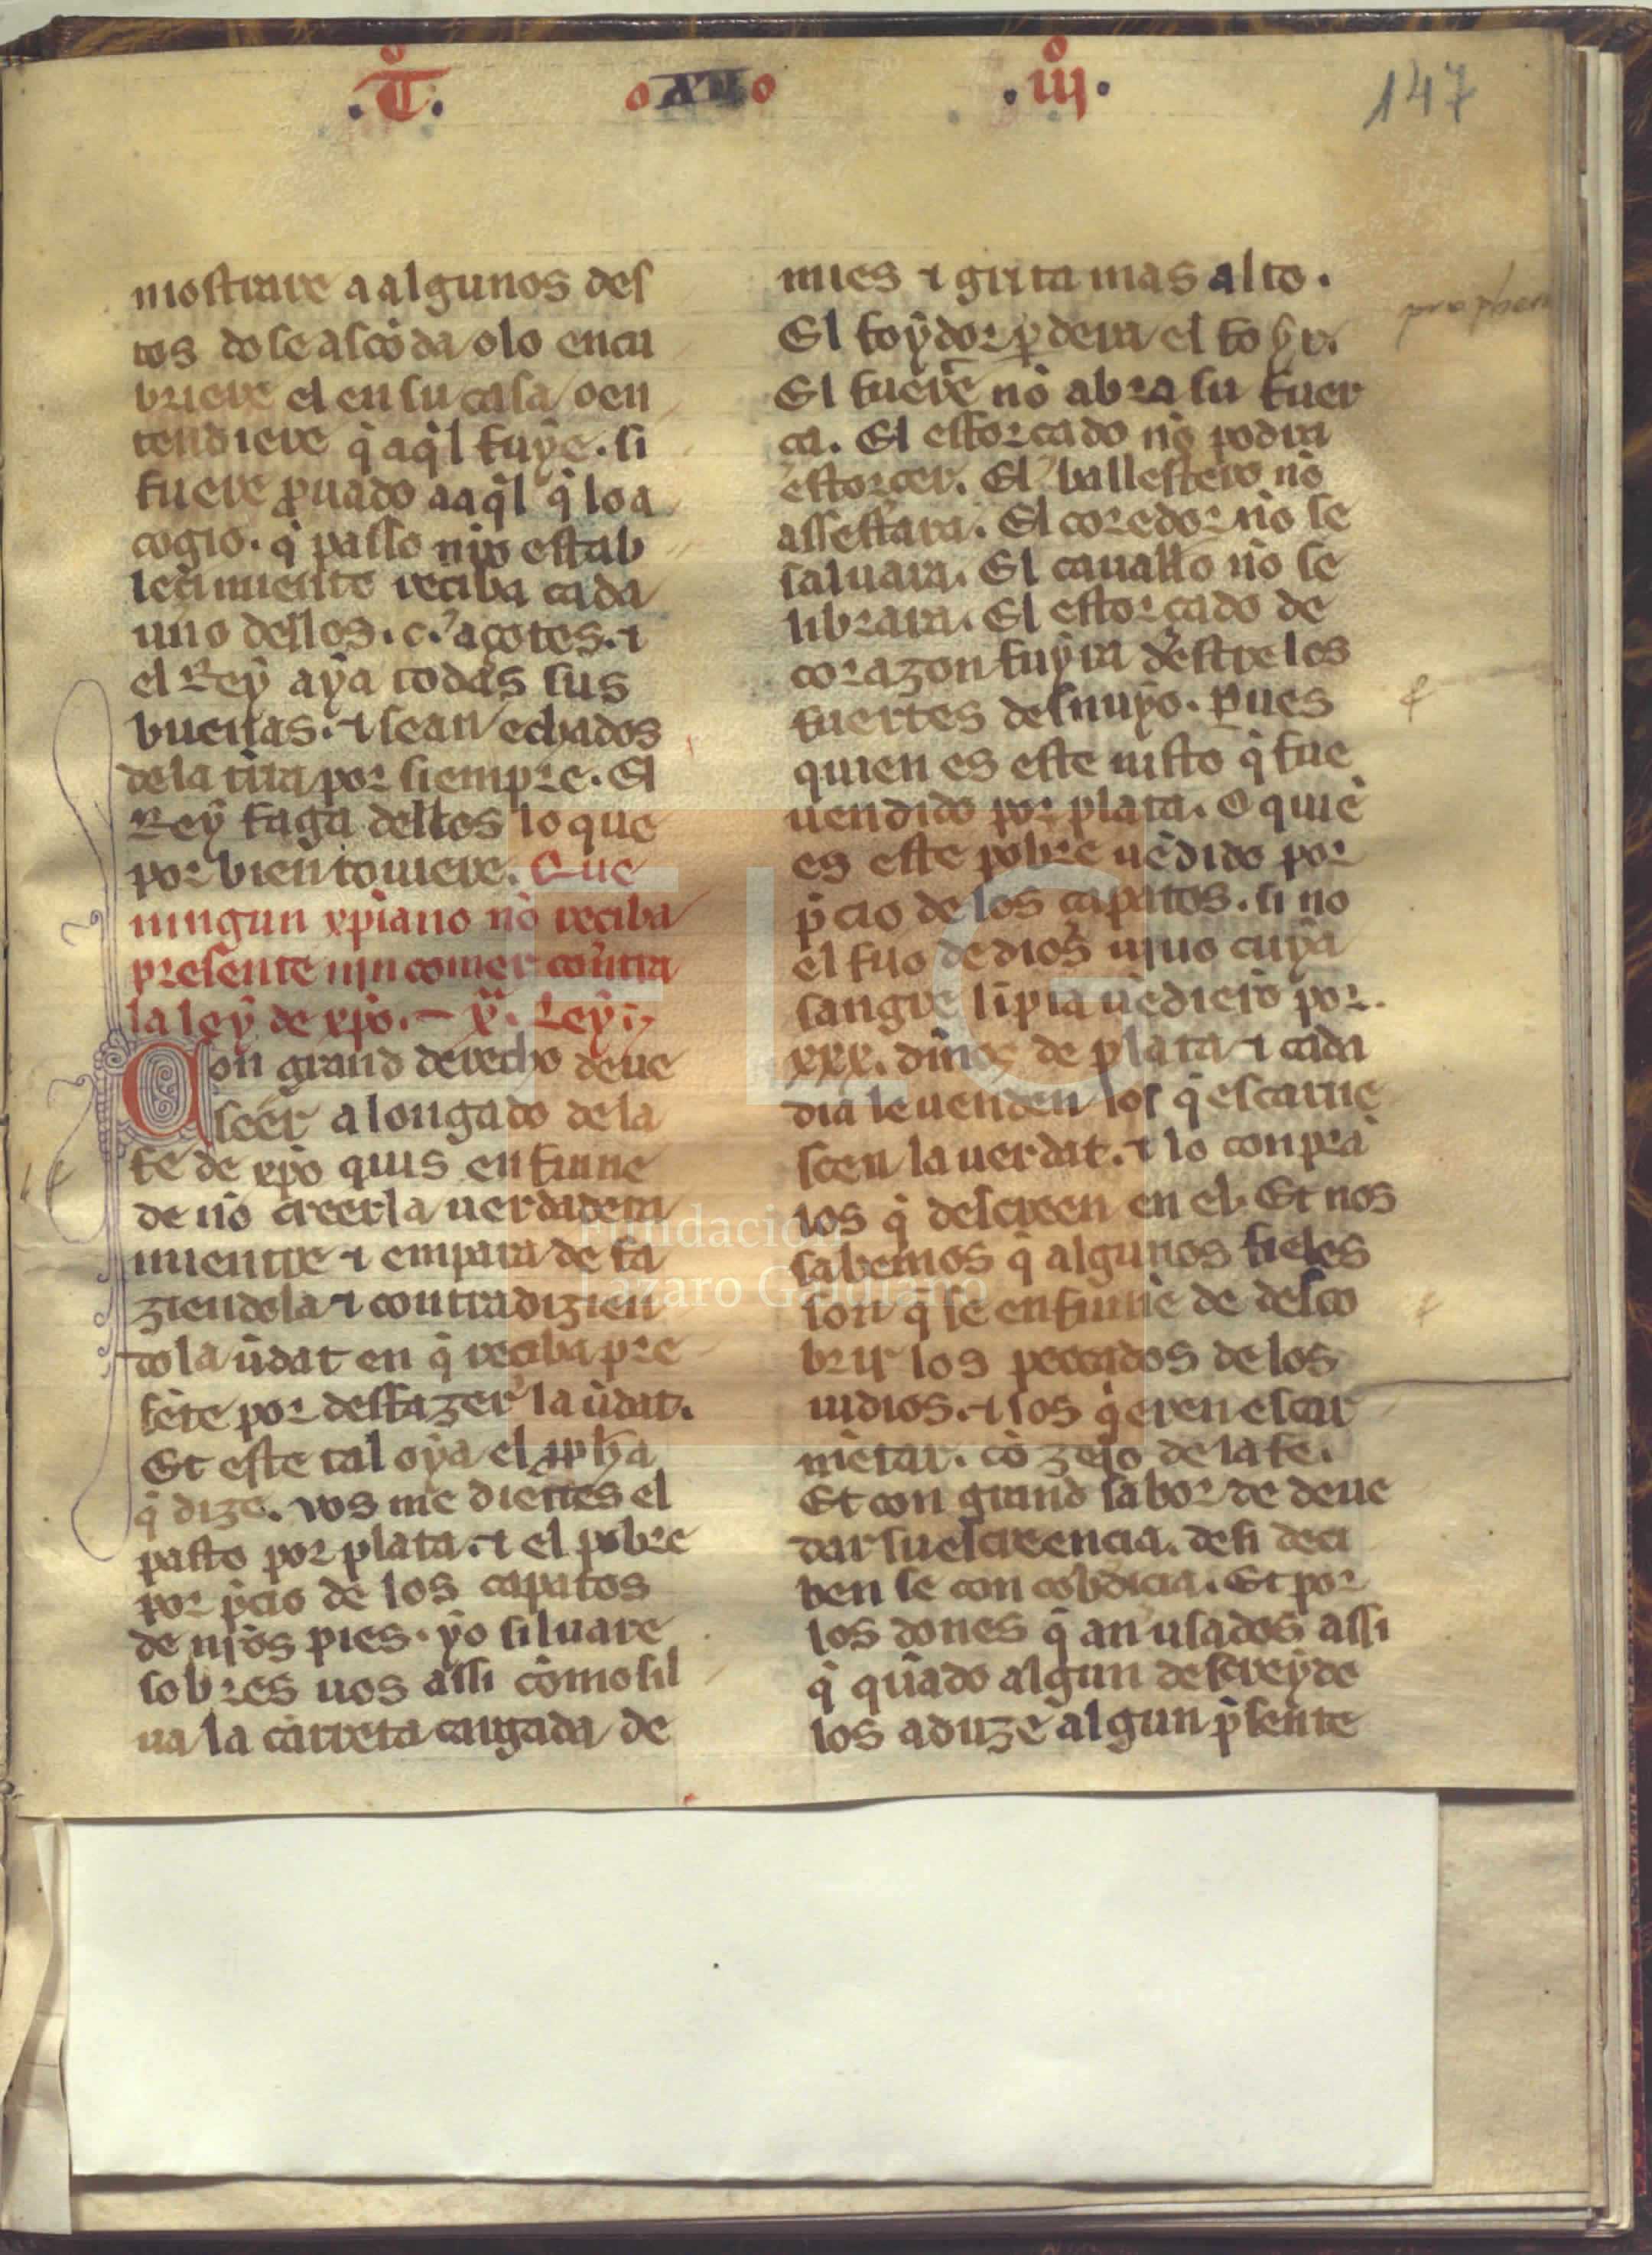 .T̊. oXIIo .III̊.
147
mostrare a algunos des
tos do se ascōda o lo encu
briere el en su casa o en
tendiere q̄ aq̄l fuye. si
fuere prouado a aq̄l q̄ lo a
cogio. q̄ passo nr̄o estab
lecimiento reciba cada
uno dellos .c. açotes. ⁊
el Rey aya todas sus
buenas. ⁊ sean echados
de la tirra por siempre. El
Rey faga dellos lo que
por bien touiere. Que
ningun xp̄iano nō reciba
presente nin comer contra
la ley de xp̄o. x̊. Ley
Con grand derecho deue
seer alongado de la
fe de xp̄o quis enfiuze
de nō creer la uerdadera
mientre ⁊ empara de fa
ziendola ⁊ contradizien
do la ūdat en q̄ reciba pre
sēte por desfazer la ūdat.
Et este tal oya el ꝓph̄a
q̄ dize. vos me diestes el
pasto por plata. ⁊ el pobre
por p̄cio de los çapatos
de nr̄os pies. yo siluare
sobres uos assi cōmo sil
ua la carreta cargada de
mies ⁊ grita mas alto.
El foydor ꝑdera el foyr.
El fuerte nō abra su fuer
ça. El esforçado nō podra
estorcer. El ballestero nō
assestara. El coredor nō se
saluara. El cauallo nō se
librara. El esforçado de
corazon fuyra dentre los
fuertes desnuyo. Pues
quien es este iusto q̄ fue
uendido por plata. O quiē
es este pobre uēdido por
p̄cio de los çapatos. si no
el fijo de dios uiuo cuya
sangre līpia uēdierō por
xxx. dineros de plata ⁊ cada
dia le uenden los q̄ escarne
scen la uerdat. ⁊ lo conprā
los q̄ descreen en el. Et nos
sabemos q̄ algunos fieles
son q̄ se enfiuzīe de desco
brir los peccados de los
iudios. ⁊ los q̄eren escar
mētar. cō zelo de la fe.
Et con grand sabor de deue
dar su escreencia. desi deci
ben se con cobdicia. Et por
los dones q̄ an usados assi
q̄ quādo algun descreyde
los aduze algun p̄sente
prophem
Fundación
Lázaro Galdiano
FLG